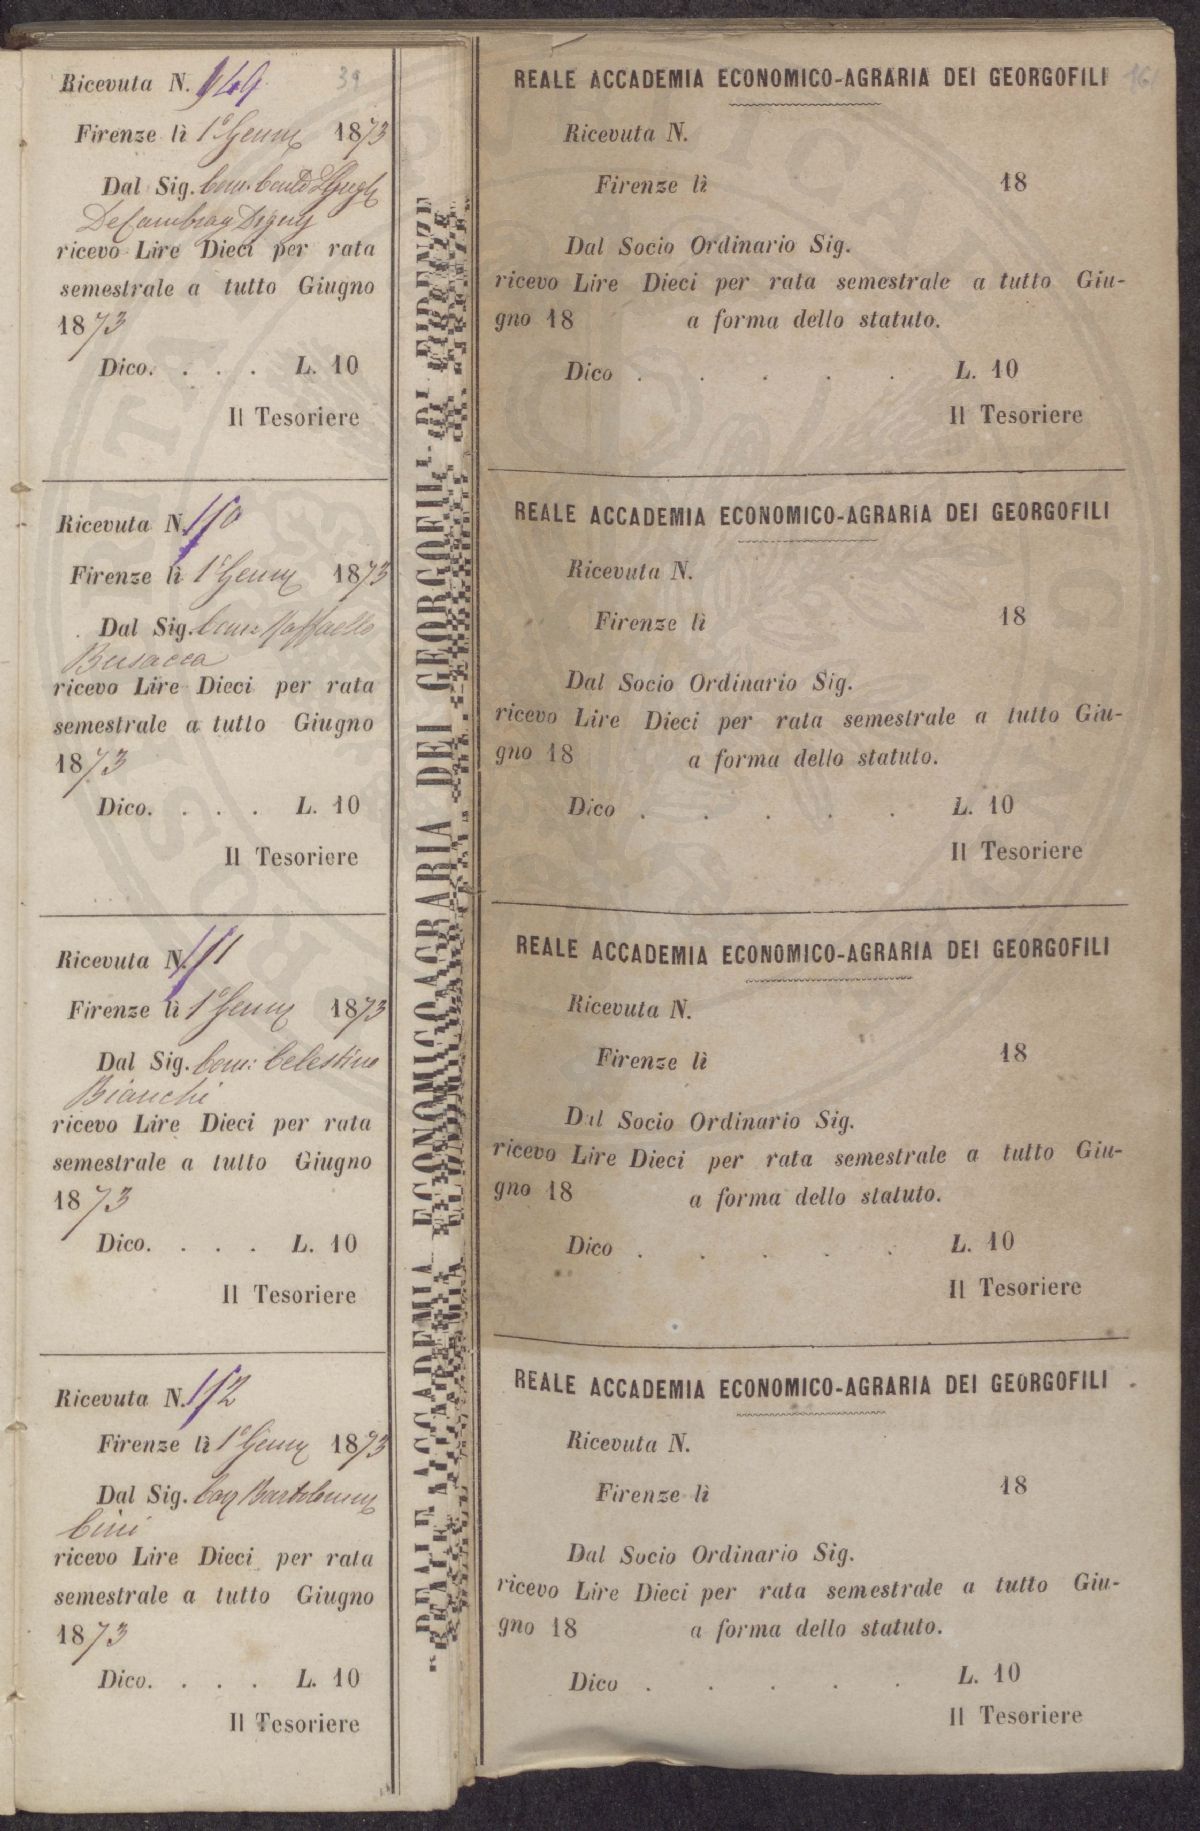 Ricevuta N. 149
39
Firenze lì 1° Genn 1873
Dal Sig. Com. Conte
De Cambray Digny
ricevo Lire Dieci per rata
semestrale a tutto Giugno
1873
Dico. . . . L. 10
Il Tesoriere
Ricevuta N. 150
Firenze lì 1° Genn 1873
Dal Sig. Com: Raffaello
Busacca
ricevo Lire Dieci per rata
semestrale a tutto Giugno
1873
Dico. . . . L. 10
Il Tesoriere
Ricevuta N. 151
Firenze lì 1° Genn 1873
Dal Sig. Com: Celestino
Bianchi
ricevo Lire Dieci per rata
semestrale a tutto Giugno
1873
Dico. . . . L. 10
Il Tesoriere
Ricevuta N. 152
Firenze lì 1° Genn 1873
Dal Sig. Cav Bartolommeo
Cini
ricevo Lire Dieci per rata
semestrale a tutto Giugno
1873
Dico. . . . L. 10
Il Tesoriere
REALE ACCADEMIA ECONOMICO AGRARIA DEI GEORGOFILI DI FIRENZE
REALE ACCADEMIA ECONOMICO-AGRARIA DEI GEORGOFILI
161
Ricevuta N.
Firenze lì 18
Dal Socio Ordinario Sig.
ricevo Lire Dieci per rata semestrale a tutto Giu-
gno 18 a forma dello statuto.
Dico . . . . . L. 10
Il Tesoriere
REALE ACCADEMIA ECONOMICO-AGRARIA DEI GEORGOFILI
Ricevuta N.
Firenze lì 18
Dal Socio Ordinario Sig.
ricevo Lire Dieci per rata semestrale a tutto Giu-
gno 18 a forma dello statuto.
Dico . . . . . L. 10
Il Tesoriere
REALE ACCADEMIA ECONOMICO-AGRARIA DEI GEORGOFILI
Ricevuta N.
Firenze lì 18
Dal Socio Ordinario Sig.
ricevo Lire Dieci per rata semestrale a tutto Giu-
gno 18 a forma dello statuto.
Dico . . . . . L. 10
Il Tesoriere
REALE ACCADEMIA ECONOMICO-AGRARIA DEI GEORGOFILI
Ricevuta N.
Firenze lì 18
Dal Socio Ordinario Sig.
ricevo Lire Dieci per rata semestrale a tutto Giu-
gno 18 a forma dello statuto.
Dico . . . . . L. 10
Il Tesoriere